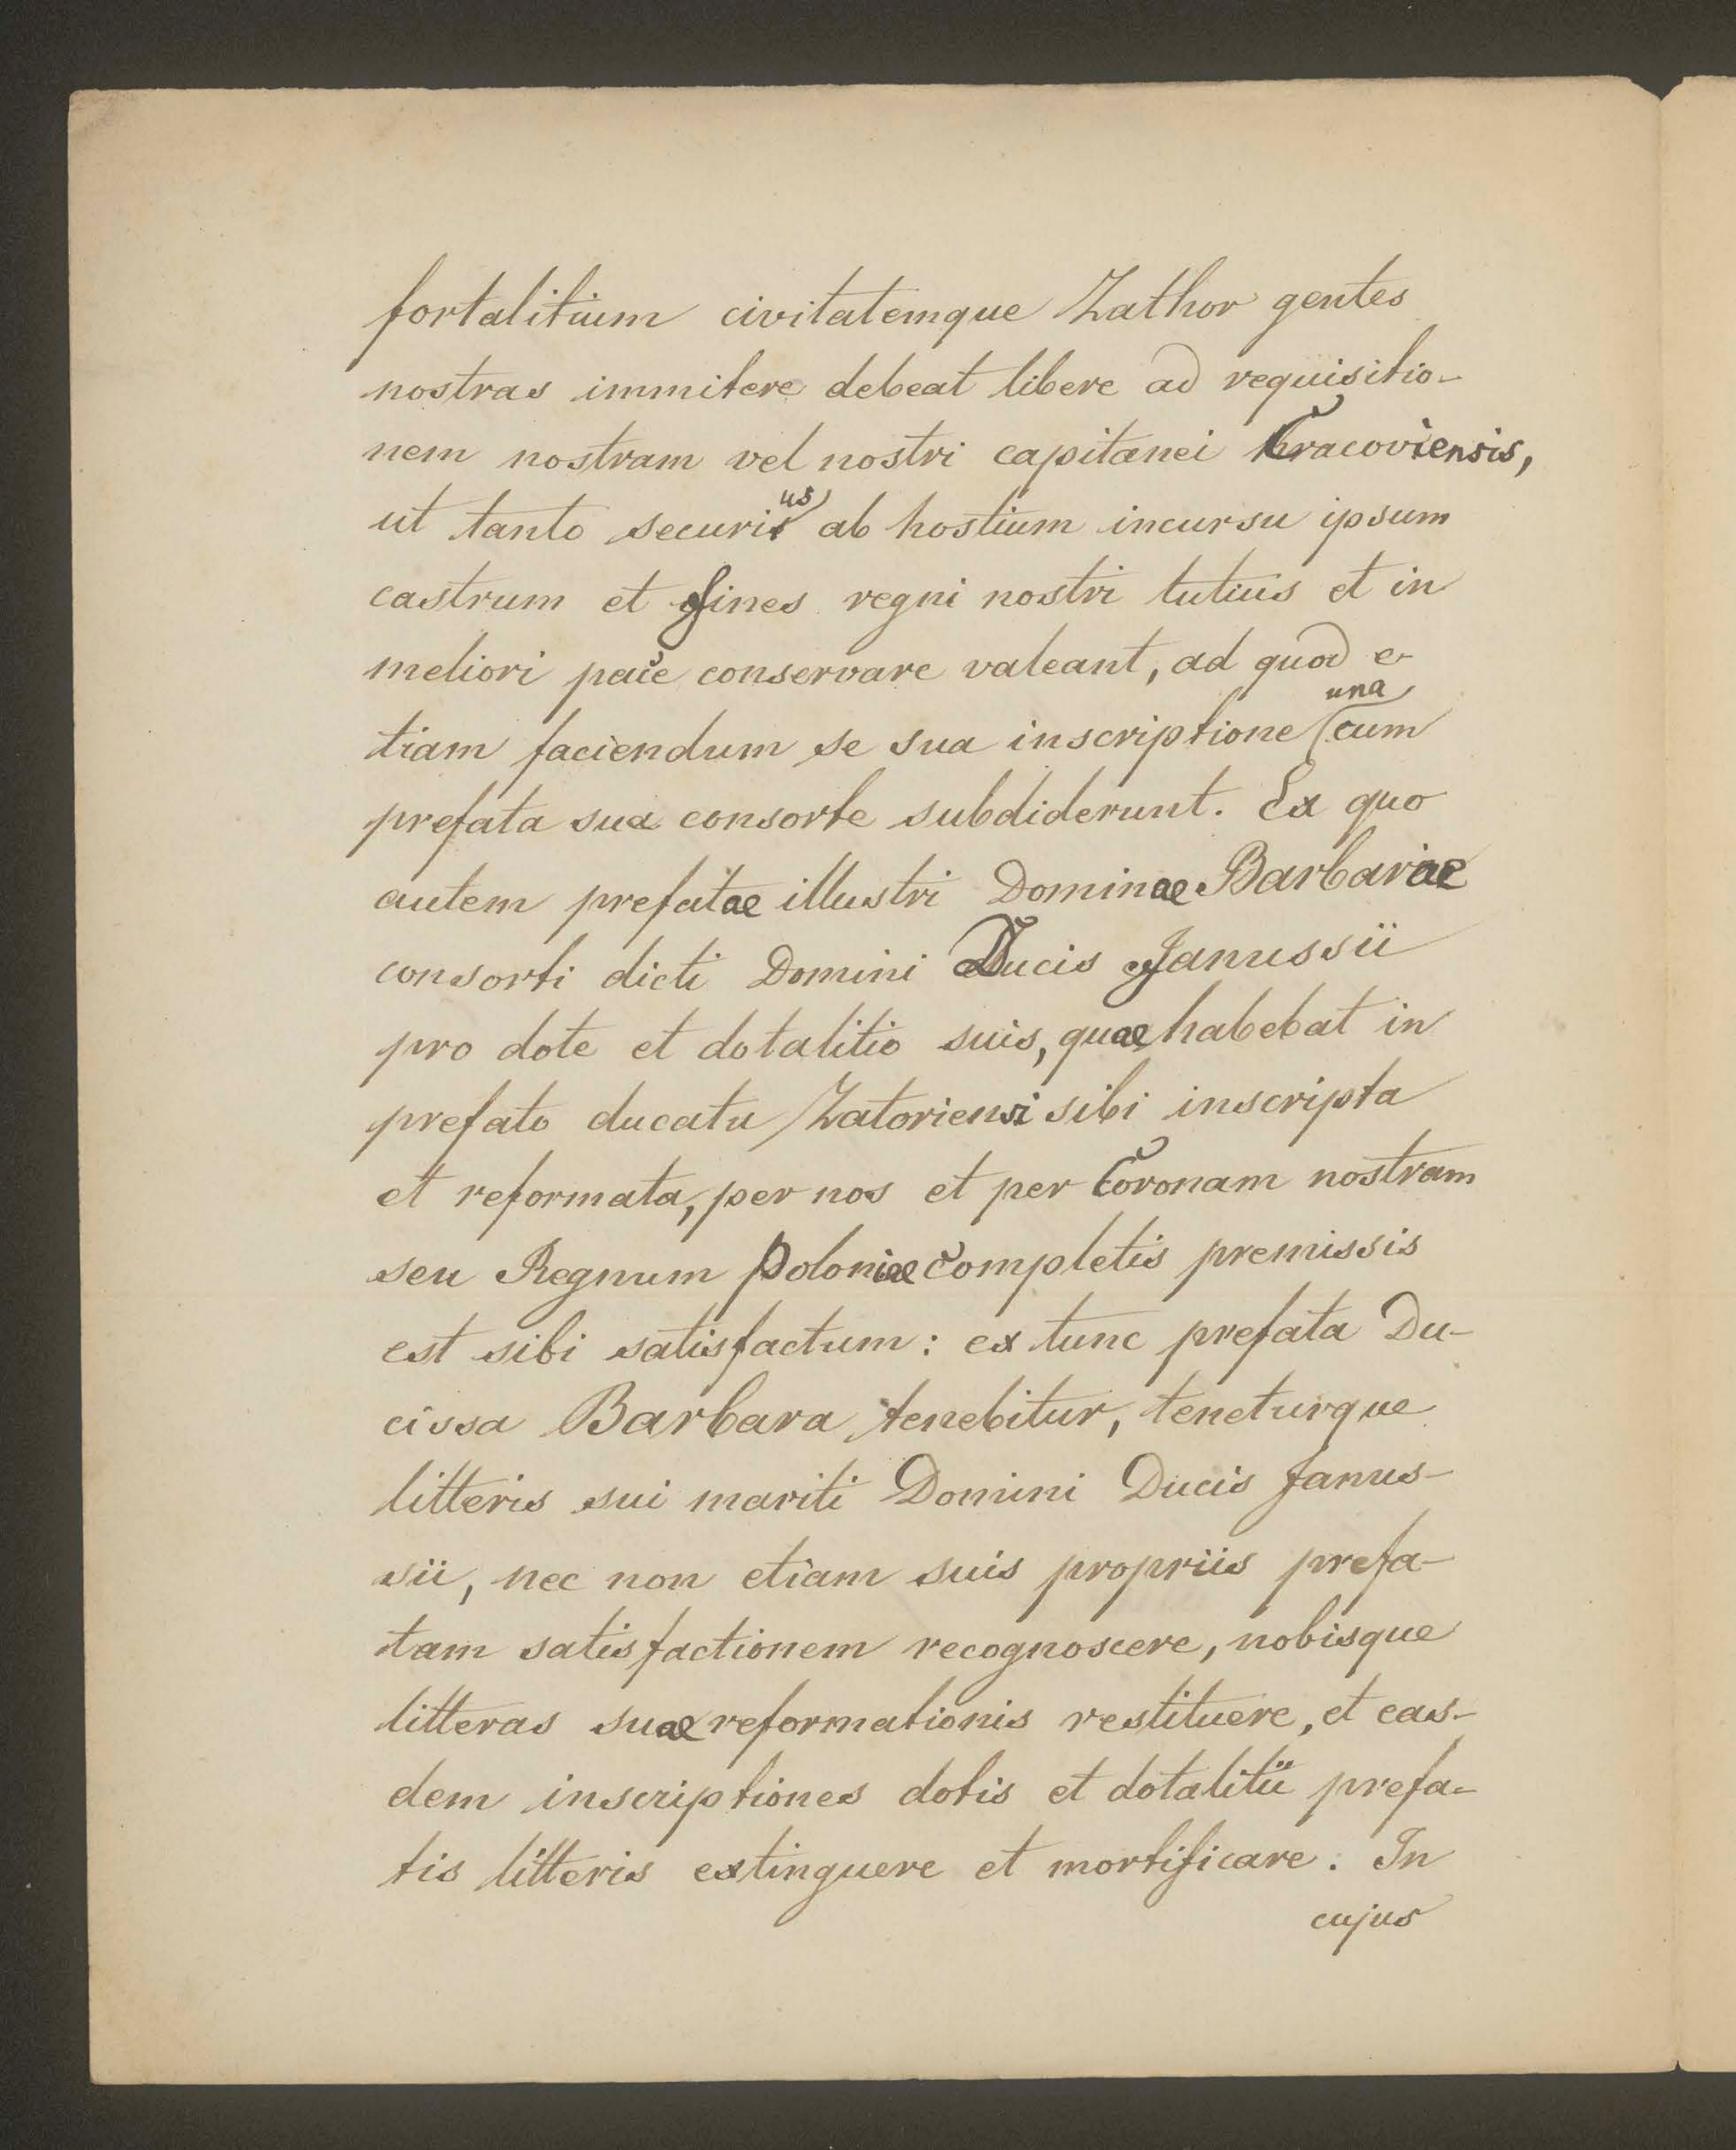 fortalitium civitatemque Zathor gentes
nostras immitere debeat libere ad requisitio-
nem nostram vel nostri capitanei Cracoviensis,
ut tanto securius ab hostium incursu ipsum
castrum et fines regni nostri tutius et in
meliori pace conservare valeant, ad quod e-
tiam faciendum se sua inscriptione una cum
prefata sua consorte subdiderunt. Ex quo
autem prefatae illustri Dominae Barbarae
consorti dicti Domini Ducis Janussii
pro dote et dotalitio suis, quae habebat in
prefato ducatu Zatoriensi sibi inscripta
et reformata, per nos et per Coronam nostram
seu Regnum Poloniae completis premissis
est sibi satisfactum: ex tunc prefata Du-
cissa Barbara tenebitur, teneturque
litteris sui mariti Domini Ducis Janus-
sii, nec non etiam suis propriis prefa-
tam satisfactionem recognoscere, nobisque
litteras suae reformationis restituere, et eas-
dem inscriptiones dotis et dotalitii prefa-
tis litteris extinguere et mortificare. In
cujus